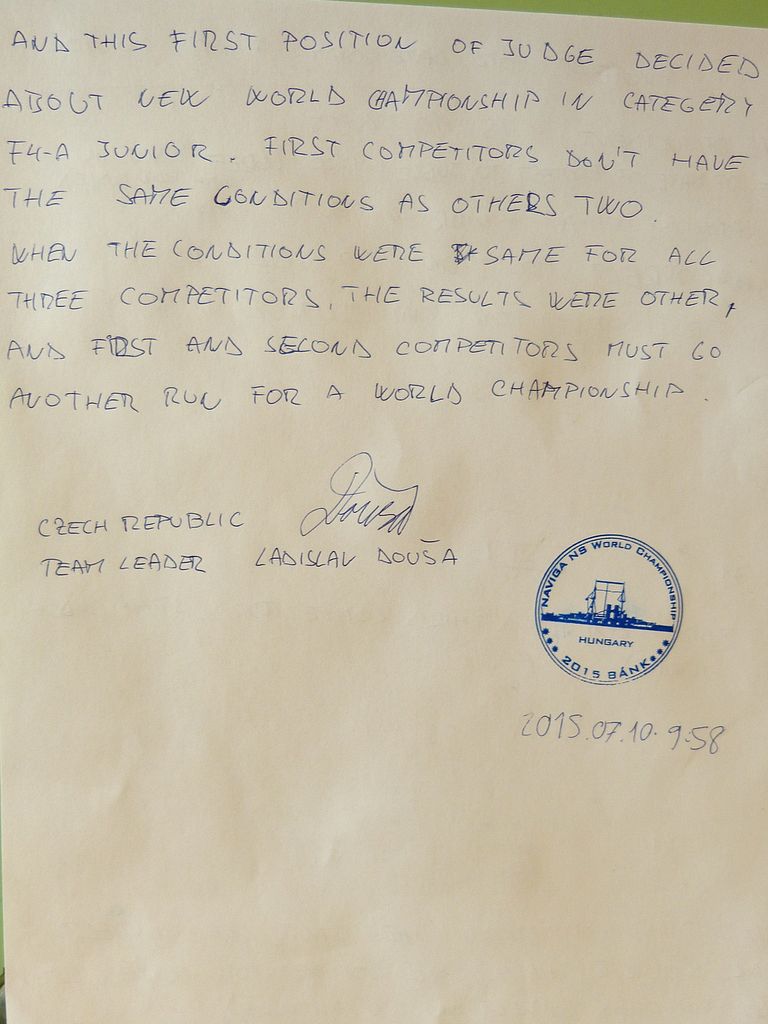 AND THIS FIRST POSITION OF JUDGE DECIDED
ABOUT NEW WORLD CHAMPIONSHIP IN CATEGERY
F4-A JUNIOR. FIRST COMPETITORS DON'T HAVE
THE SAME CONDITIONS AS OTHERS TWO.
WHEN THE CONDITIONS WERE SAME FOR ALL
THREE COMPETITORS, THE RESULTS WERE OTHER,
AND FIRST AND SECOND COMPETITORS MUST GO
ANOTHER RUN FOR A WORLD CHAMPIONSHIP.
Douša
CZECH REPUBLIC
TEAM LEADER LADISLAV DOUŠA
NAVIGA NS WORLD CHAMPIONSHIP
HUNGARY
2015 BÁNK
2015.07.10. 9:58